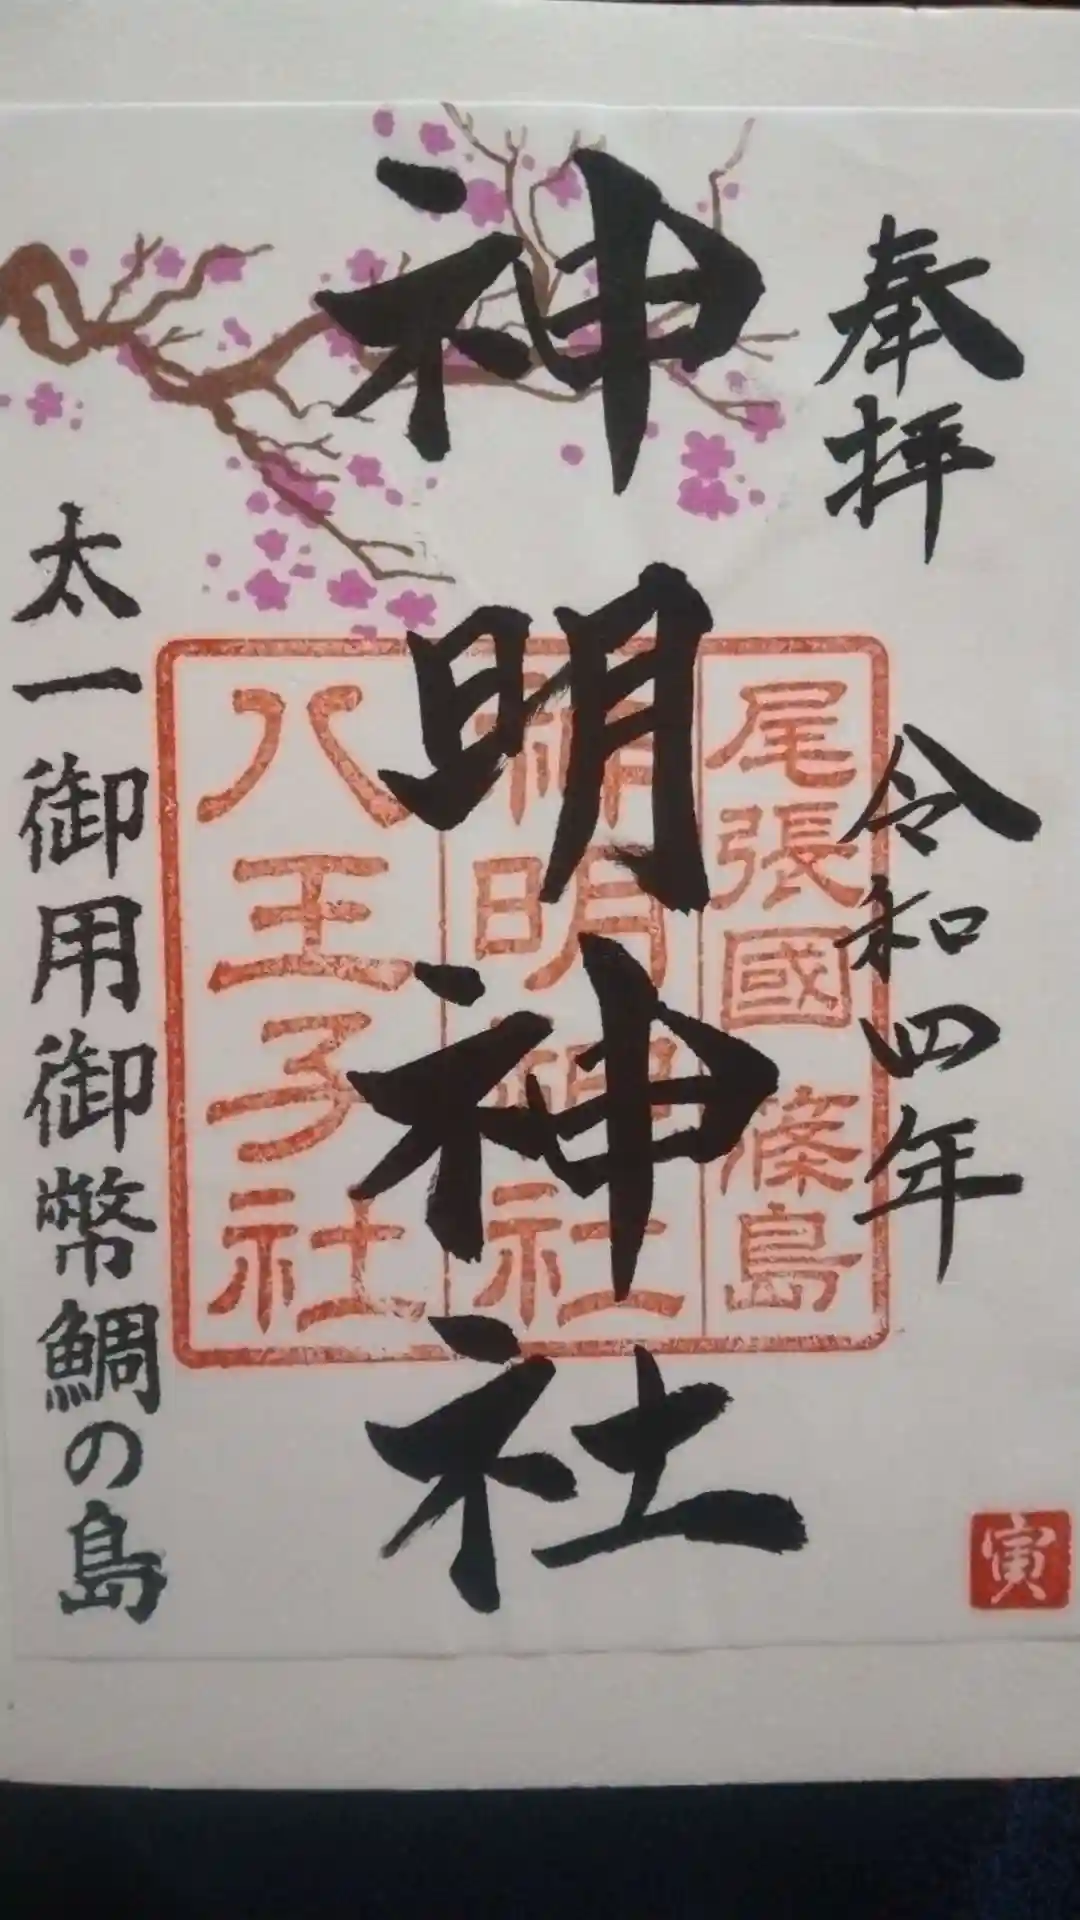 奉拝
令和四年
寅
神明神社
尾張國 篠島
神明神社
八王子社
太一御用御幣鯛の島